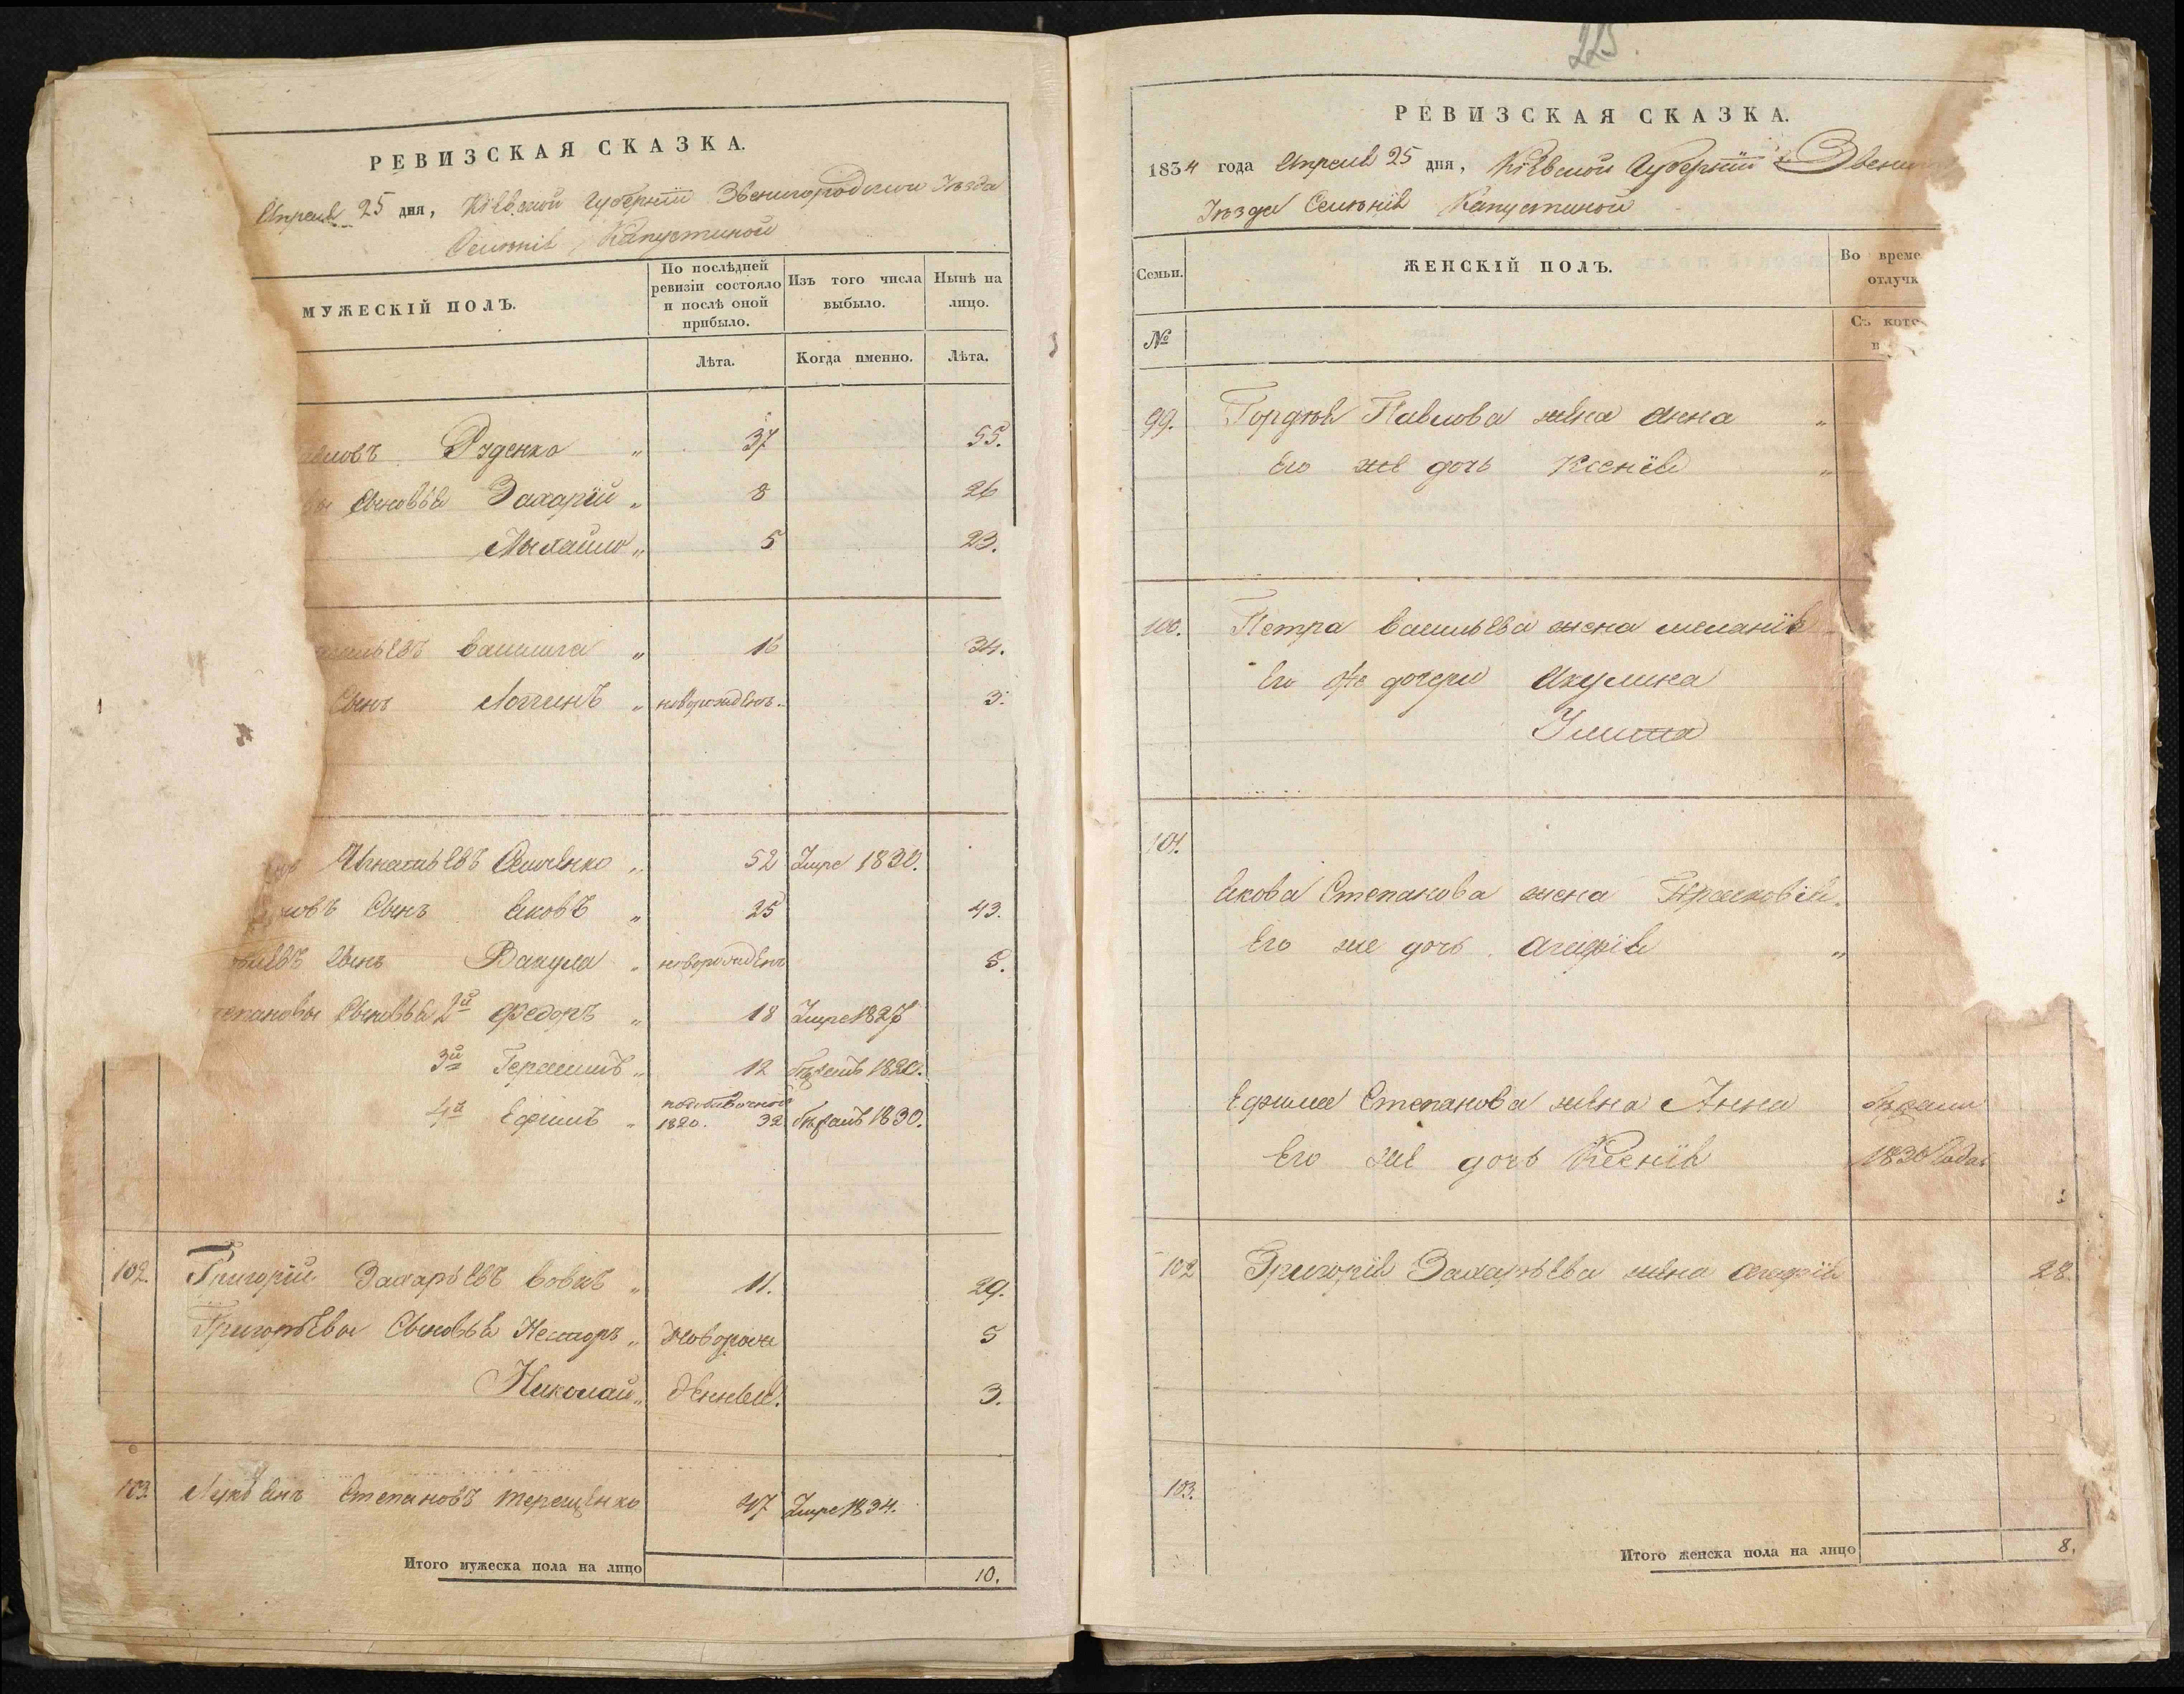 РЕВИЗСКАЯ СКАЗКА.
Апреля 25 дня, Кіевской Губерніи Звенигородскаго Уѣзда
Селѣнія Капустиной
МУЖЕСКІЙ ПОЛЪ.
По послѣдней ревизіи состояло и послѣ оной прибыло.
Изъ того числа выбыло.
Нынѣ на лицо.
Лѣта.
Когда именно.
Лѣта.
авловъ Руденко „ 37 55.
ы Сыновья Захарїй „ 8 26
Михайло „ 5 23.
сильевъ „ 16 34.
Сынъ Логгинъ „ новорожденъ. 3.
Игнатьевъ „ 52 Умре 1830.
ковъ Сынъ Яковъ „ 25 43.
Сынъ Вакула „ новорожденъ 5.
тепановы Сыновья 2й Федоръ „ 18 Умре 1827
3й Герасимъ „ 12 бѣжалъ 1820.
4й Ефимъ „ 1820. 32 бѣжалъ 1830.
102. Григорїй Захарьевъ „ 11. 29.
Григорьевы Сыновья Несторъ „ Новорож 5
Николай „ денные. 3.
103. Лукьянъ Степановъ Терещенко 47 Умре 1834.
Итого мужеска пола на лицо 10.
225.
РЕВИЗСКАЯ СКАЗКА.
1834 года Апреля 25 дня, Кіевской Губерніи Звениг
Уѣзда Селѣнія Капустиной
Семьи.
ЖЕНСКІЙ ПОЛЪ.
Во време
отлучк
№
Съ кото
п
99. Гордѣя Павлова жена Анна „
Его же дочь Ксенїя „
100. Петра Васильева жена Меланїя
Его же дочери Акулина
Улита
101.
Якова Степанова жена Прасковїя.
Его же дочь Агафїя „
Ефима Степанова жена Анна бѣжали
Его же дочь Ксенїя 1830 года
102 Григорїя Захарьева жена Агафїя 28.
103.
Итого женска пола на лицо 8.